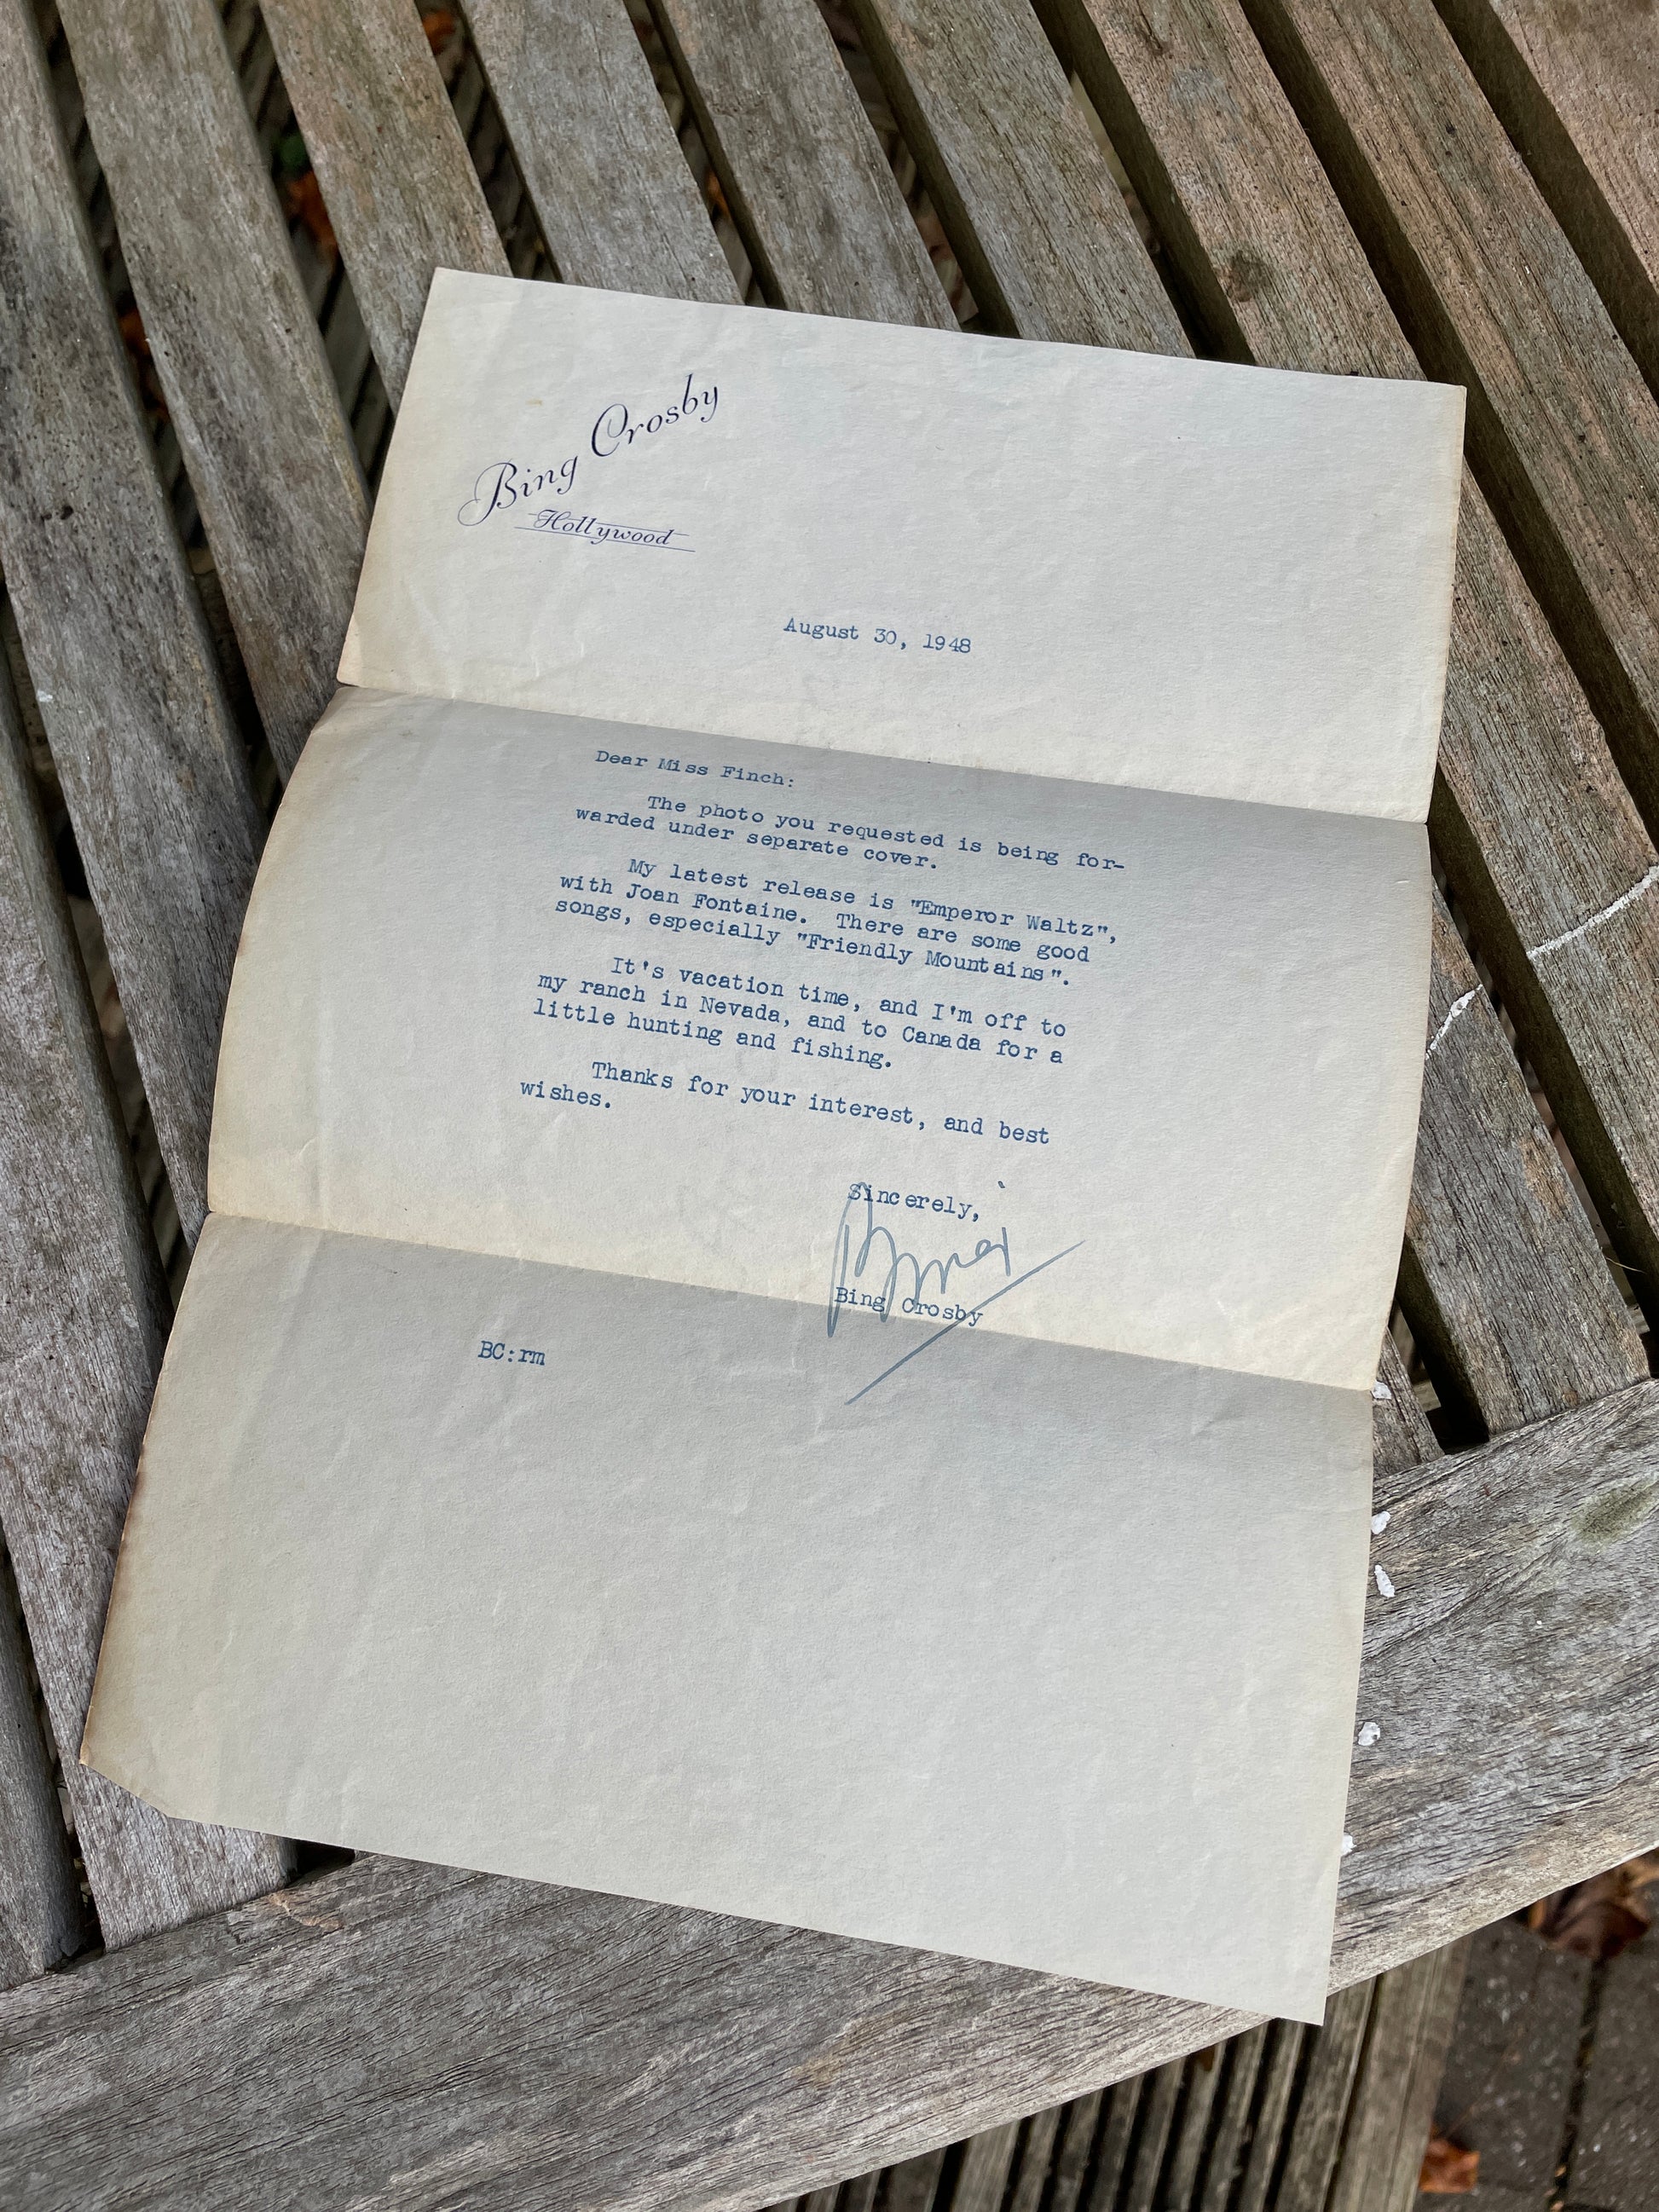 Bing Crosby
Hollywood
August 30, 1948
Dear Miss Finch:
The photo you requested is being for-
warded under separate cover.
My latest release is "Emperor Waltz",
with Joan Fontaine. There are some good
songs, especially "Friendly Mountains".
It's vacation time, and I'm off to
my ranch in Nevada, and to Canada for a
little hunting and fishing.
Thanks for your interest, and best
wishes.
Sincerely,
Bing
Bing Crosby
BC:rm